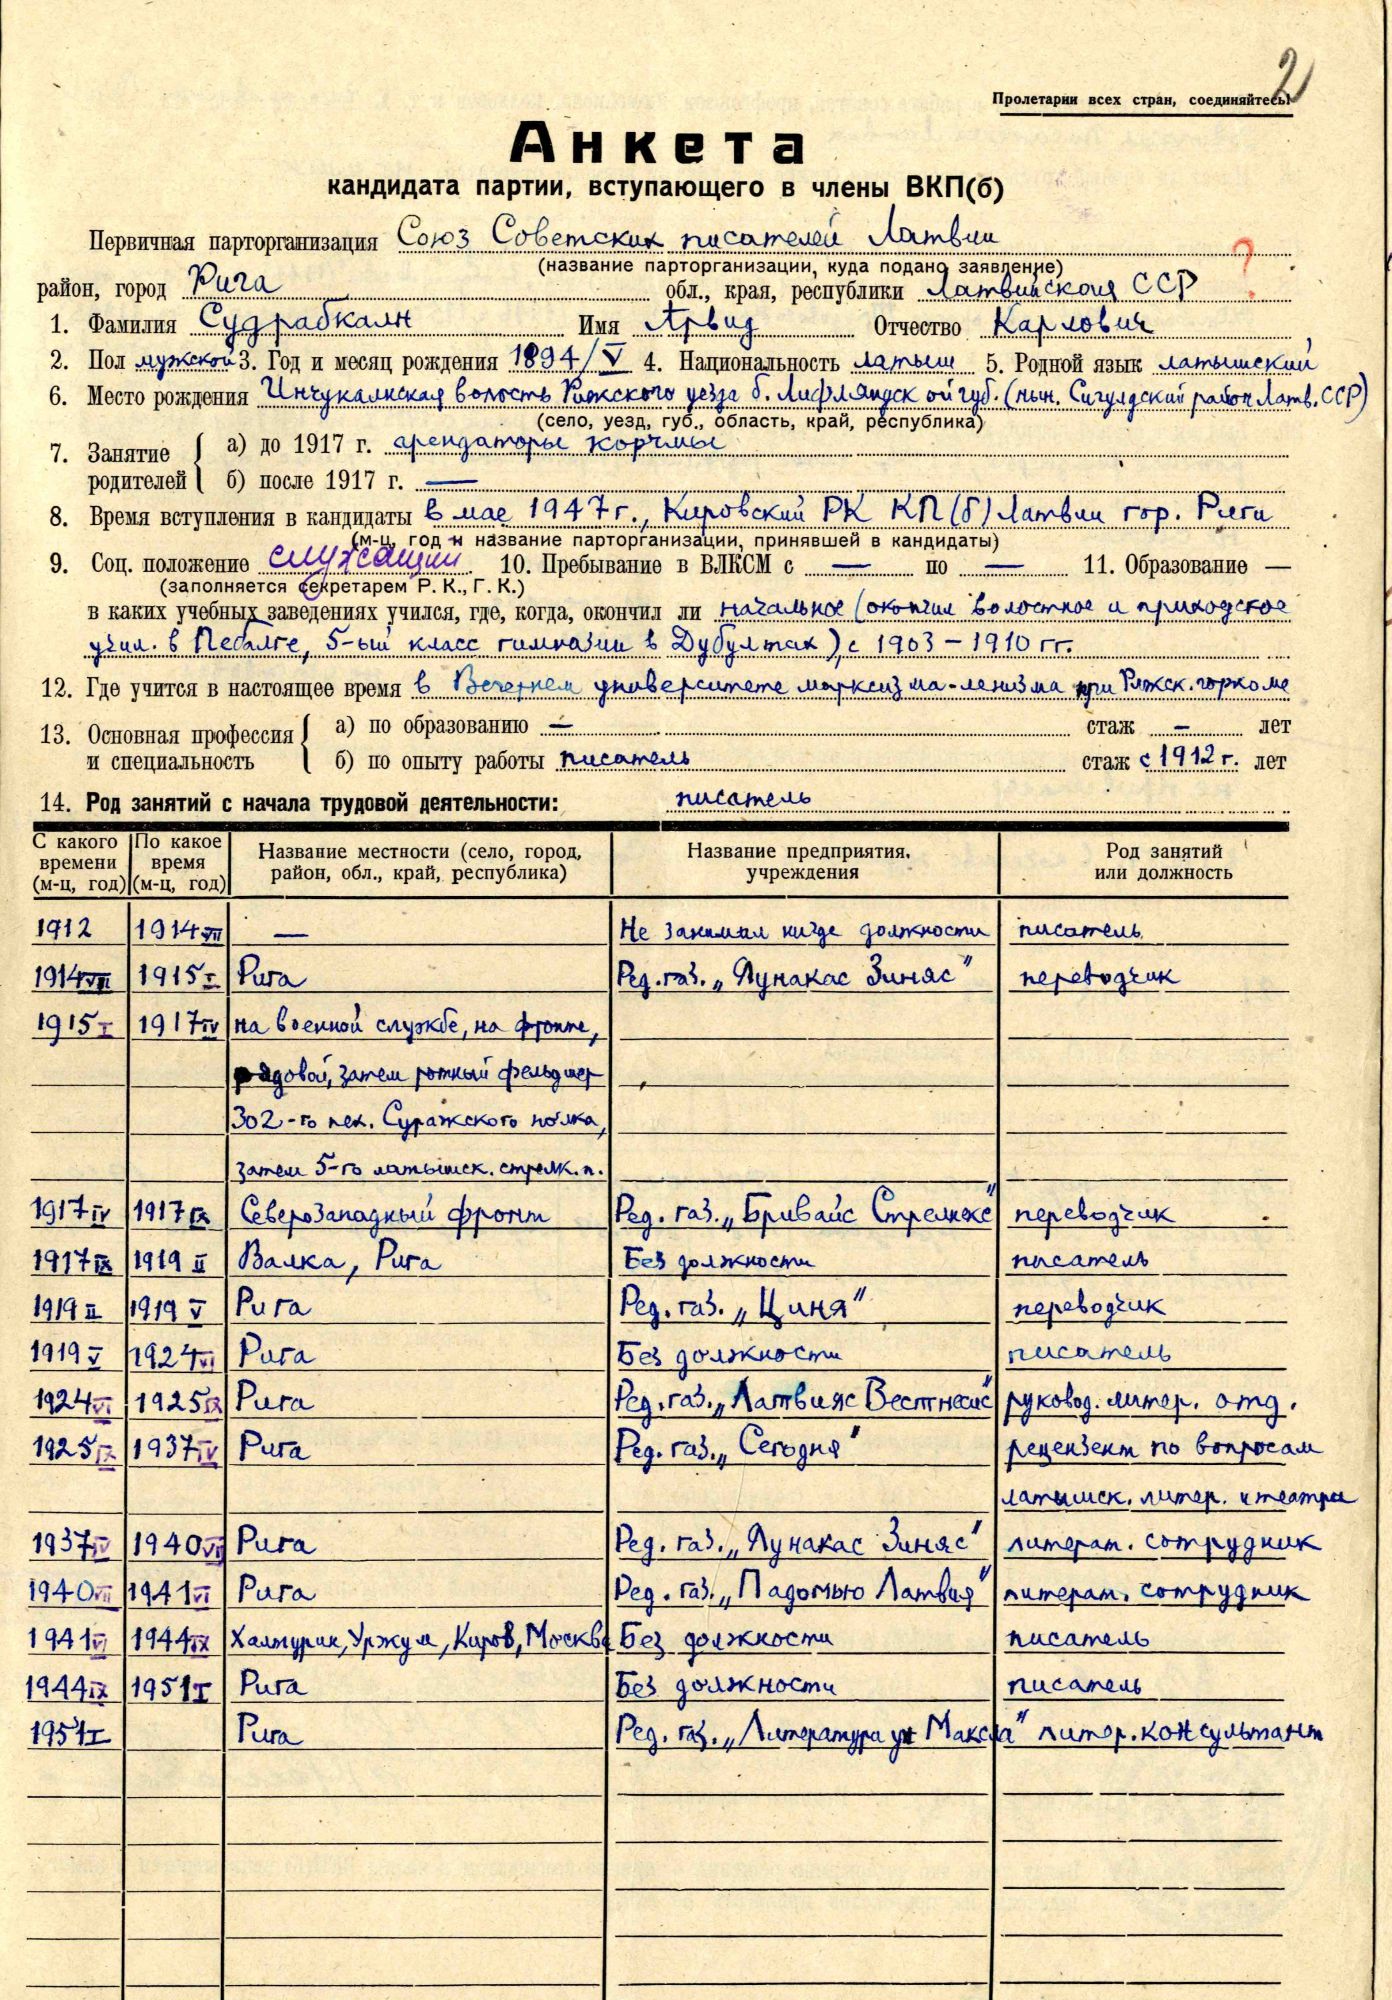 2
Пролетарии всех стран, соединяйтесь!
Анкета
кандидата партии, вступающего в члены ВКП(б)
Первичная парторганизация Союз Советских писателей Латвии
(название парторганизации, куда подано заявление)
?
район, город Рига обл., края, республики Латвийская ССР
1. Фамилия Судрабкалн Имя Арвид Отчество Карлович
2. Пол мужской 3. Год и месяц рождения 1894/V 4. Национальность латыш 5. Родной язык латышский
6. Место рождения Инчукалнская волость Рижского уезда б. Лифляндской губ. (нын. Сигулдский район Латв. ССР)
(село, уезд, губ., область, край, республика)
7. Занятие родителей { а) до 1917 г. арендаторы корчмы
б) после 1917 г. —
8. Время вступления в кандидаты в мае 1947 г., Кировский РК КП(б) Латвии гор. Риги
(м-ц, год и название парторганизации, принявшей в кандидаты)
9. Соц. положение служащий. 10. Пребывание в ВЛКСМ с — по — 11. Образование —
(заполняется секретарем Р. К., Г. К.)
в каких учебных заведениях учился, где, когда, окончил ли начальное (окончил волостное и приходское
учил. в Пебалге, 5-ый класс гимназии в Дубултах), с 1903 – 1910 гг.
12. Где учится в настоящее время в Вечернем университете марксизма-ленизма при Рижск. горкоме
13. Основная профессия и специальность { а) по образованию — стаж - лет
б) по опыту работы писатель стаж с 1912 г. лет
14. Род занятий с начала трудовой деятельности: писатель
С какого времени (м-ц, год) По какое время (м-ц, год) Название местности (село, город, район, обл., край, республика) Название предприятия, учреждения Род занятий или должность
1912 1914 VII — Не занимал нигде должности писатель
1914 VIII 1915 I Рига Ред. газ. „Яунакас Зиняс" переводчик
1915 I 1917 IV на военной службе, на фронте,
рядовой, затем ротный фельдшер
302-го пех. Суражского полка,
затем 5-го латышск. стрелк. п.
1917 IV 1917 IX Северозападный фронт Ред. газ. „Бривайс Стрелнекс" переводчик
1917 IX 1919 II Валка, Рига Без должности писатель
1919 II 1919 V Рига Ред. газ. „Циня" переводчик
1919 V 1924 VI Рига Без должности писатель
1924 VI 1925 IX Рига Ред. газ. „Латвияс Вестнесис" руковод. литер. отд.
1925 IX 1937 IV Рига Ред. газ. „Сегодня" рецензент по вопросам
латышск. литер. и театра
1937 IV 1940 VII Рига Ред. газ. „Яунакас Зиняс" литерат. сотрудник
1940 VII 1941 VI Рига Ред. газ. „Падомью Латвия" литерат. сотрудник
1941 VI 1944 IX Халтурин, Уржум, Киров, Москва Без должности писатель
1944 IX 1951 I Рига Без должности писатель
1951 I Рига Ред. газ. „Литература ун Максла" литер. консультант